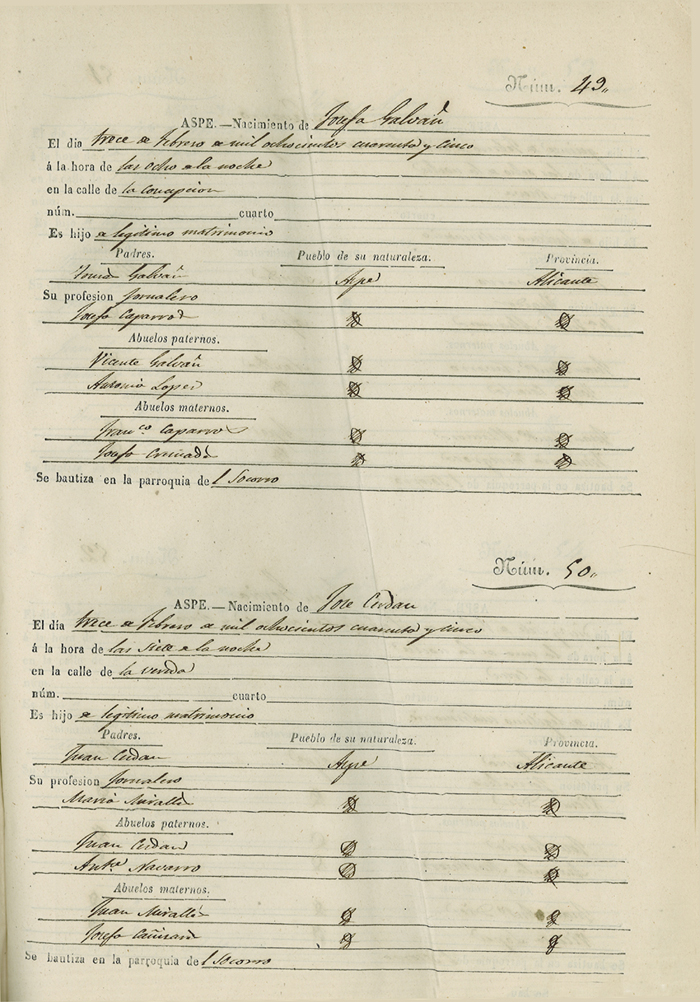 Núm. 49.
ASPE.—Nacimiento de Josefa Galvañ
El dia trece de Febrero de mil ochocientos cuarenta y cinco
á la hora de las ocho de la noche
en la calle de la Concepcion
núm. cuarto
Es hijo de legitimo matrimonio
Padres. Pueblo de su naturaleza. Provincia.
Galvañ Aspe Alicante
Su profesion Jornalero
Josefa Caparros
Abuelos paternos.
Vicente Galvañ
Antonia Lopez
Abuelos maternos.
Fran.co Caparros
Josefa
Se bautiza en la parroquia del Socorro
Núm. 50.
ASPE.—Nacimiento de Jose Cerdan
El día trece de Febrero de mil ochocientos cuarenta y cinco
á la hora de las siete de la noche
en la calle de la vereda
núm. cuarto
Es hijo de legitimo matrimonio
Padres. Pueblo de su naturaleza. Provincia.
Juan Cerdan Aspe Alicante
Su profesion Jornalero
Maria Miralles
Abuelos paternos.
Juan Cerdan
Ant.a Navarro
Abuelos maternos.
Juan Miralles
Josefa Cañizares
Se bautiza en la parroquia del Socorro